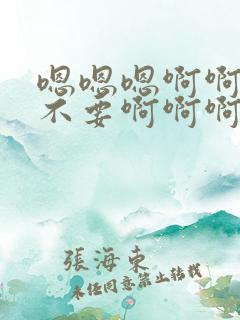 嗯嗯嗯啊啊
不要啊啊啊
張海東
未經同意禁止轉載